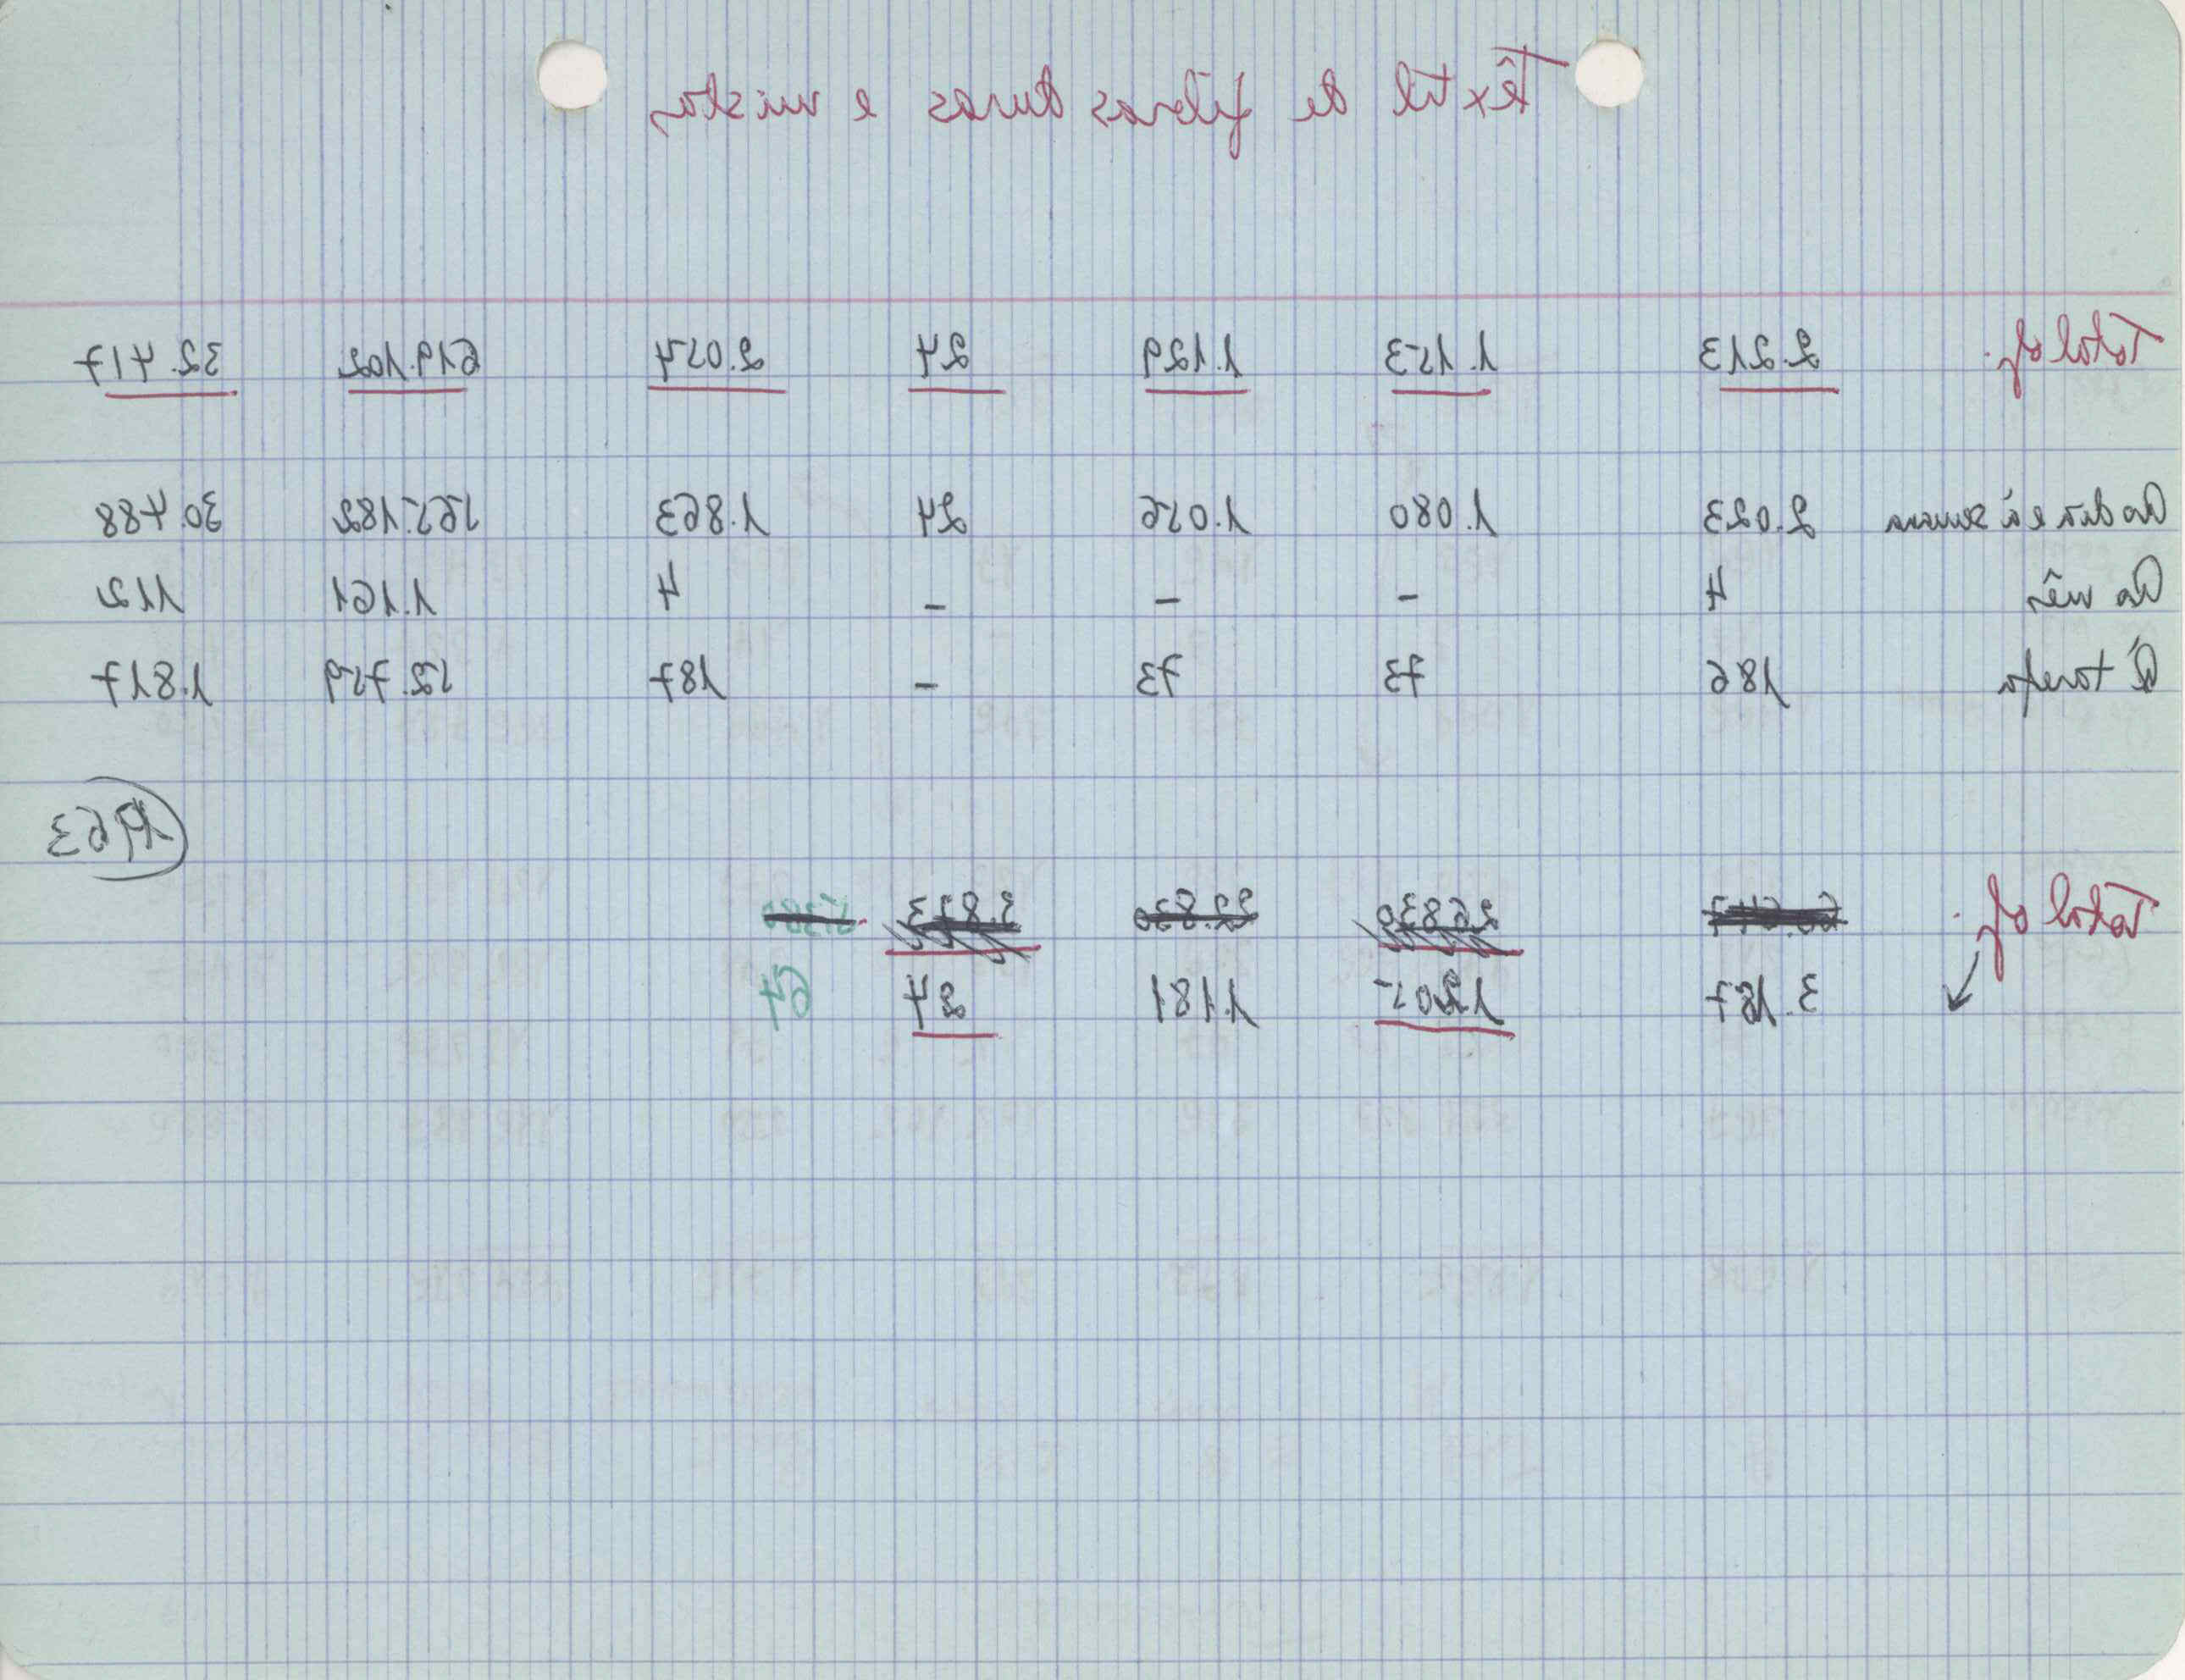 Têxtil de fibras duras e mistas
Total of. 2.213 1.153 1.129 24 2.054 619.102 32.417
Ao dia e à semana 2.023 1.080 1.056 24 1.863 565.182 30.488
Ao mês 4 - - - 4 1.161 112
À tarefa 186 73 73 - 187 52.759 1.817
1963
Total of. 26.830 22.830 3.873
3.167 1205 1.181 24 64